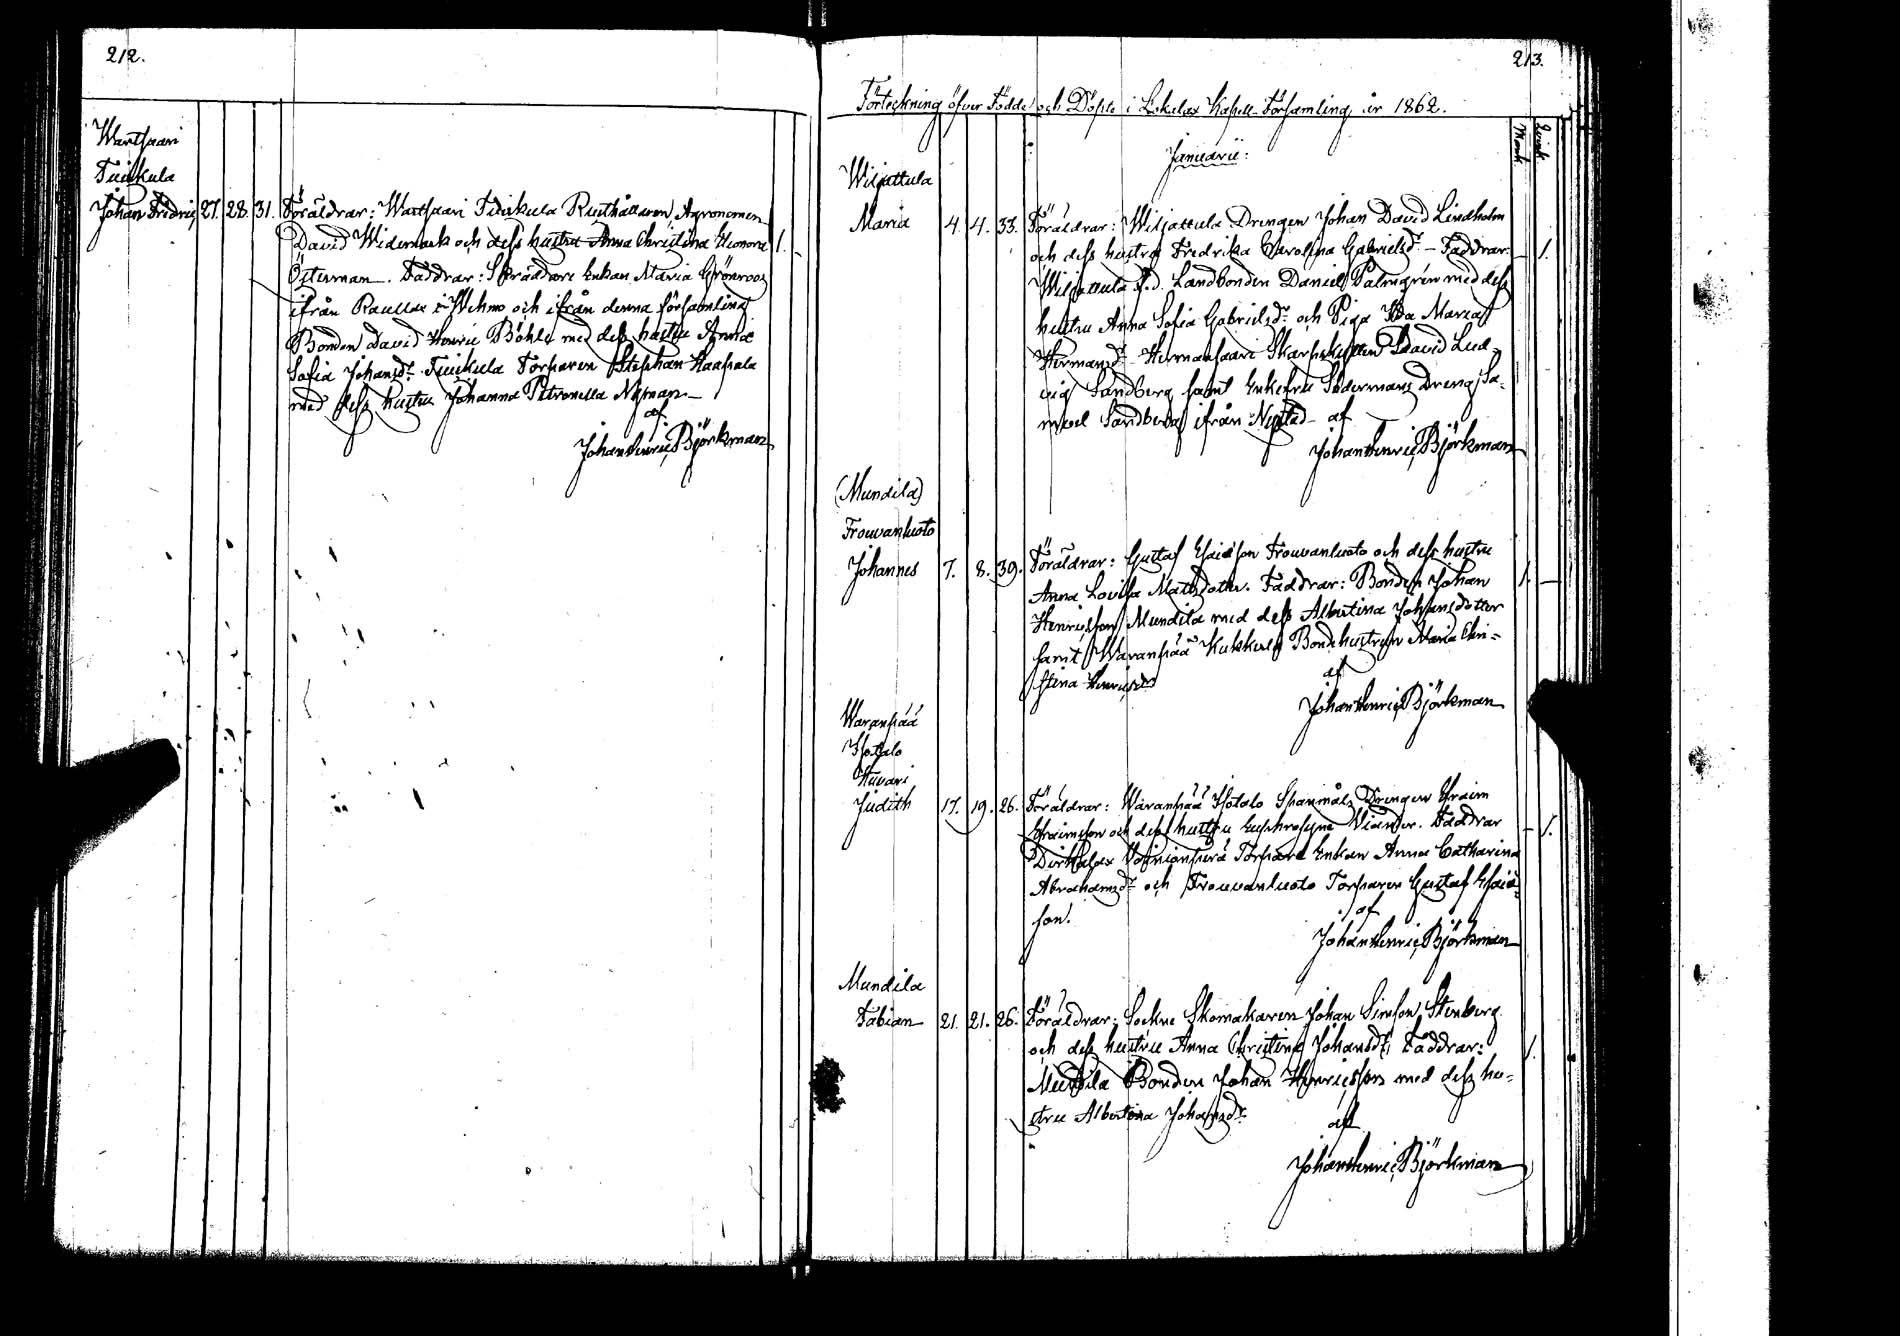 212.
Wartsaari
Tuukula
Johan Fredric 27. 28. 31. Föräldrar: Wartsaari Tuukula Rusthållaren Agronomen
David Widemark och dess hustru Anna Christina Eleonora 1.
Österman. Faddrar: Skräddare Enkan Maria Grönroos
ifrån i Wehmo och ifrån denna församling
Bonden David Henric Böhle med dess hustru Anna
Sofia Johansdr. Tuukula Torparen Stephan Haapala
med dess hustru Johanna Petronella Nyman
af
Johan Henric Björkman
213.
Förteckning öfver Födde och Döpte i Lokalax Kapell-Församling år 1862.
Mank
Qvink
Januarii:
Wiljattula
Maria 4. 4. 33. Föräldrar: Wiljattula Drengen Johan David Lindholm
och dess hustru Fredrika Carolina Gabrielsdr. – Faddrar: – 1.
Wiljattula f.d. Landbonden Daniel Palmgren med dess
hustru Anna Sofia Gabrielsdr. och Piga Ida Maria
Hermansdr. Hermansaari Skarpskytten David Lud-
vig Sandberg samt Enkefru Södermans Dreng Sa-
muel Sandberg ifrån Nystad af
Johan Henric Björkman
(Mundila)
Frouvanluoto
Johannes 7. 8. 39. Föräldrar: Gustaf Esaiasson Frouvanluoto och dess hustru
Anna Lovisa Matsdotter. Faddrar: Bonden Johan 1. –
Henricsson Mundila med dess Albertina Johansdotter
samt Waranpää Kukkula Bondehustrun Maria Chri-
stina Henricsdr.
af
Johan Henric Björkman
Waranpää
Isotalo
Huvari
Judith 17. 19. 26. Föräldrar: Waranpää Isotalo Spanmåls Drengen Efraim
Efraimsson och dess hustru Euphrosyne Viander. Faddrar – 1.
Torpare Enkan Anna Catharina
Abrahamsdr. och Frouvanluoto Torparen Gustaf Esaias-
son.
af
Johan Henric Björkman
Mundila
Fabian 21. 21. 26. Föräldrar: Sockne Skomakaren Johan Simson Stenberg
och dess hustru Anna Christina Johansdr. Faddrar: 1.
Mundila Bonden Johan Henricsson med dess hu-
stru Albertina Johansdr.
af
Johan Henric Björkman